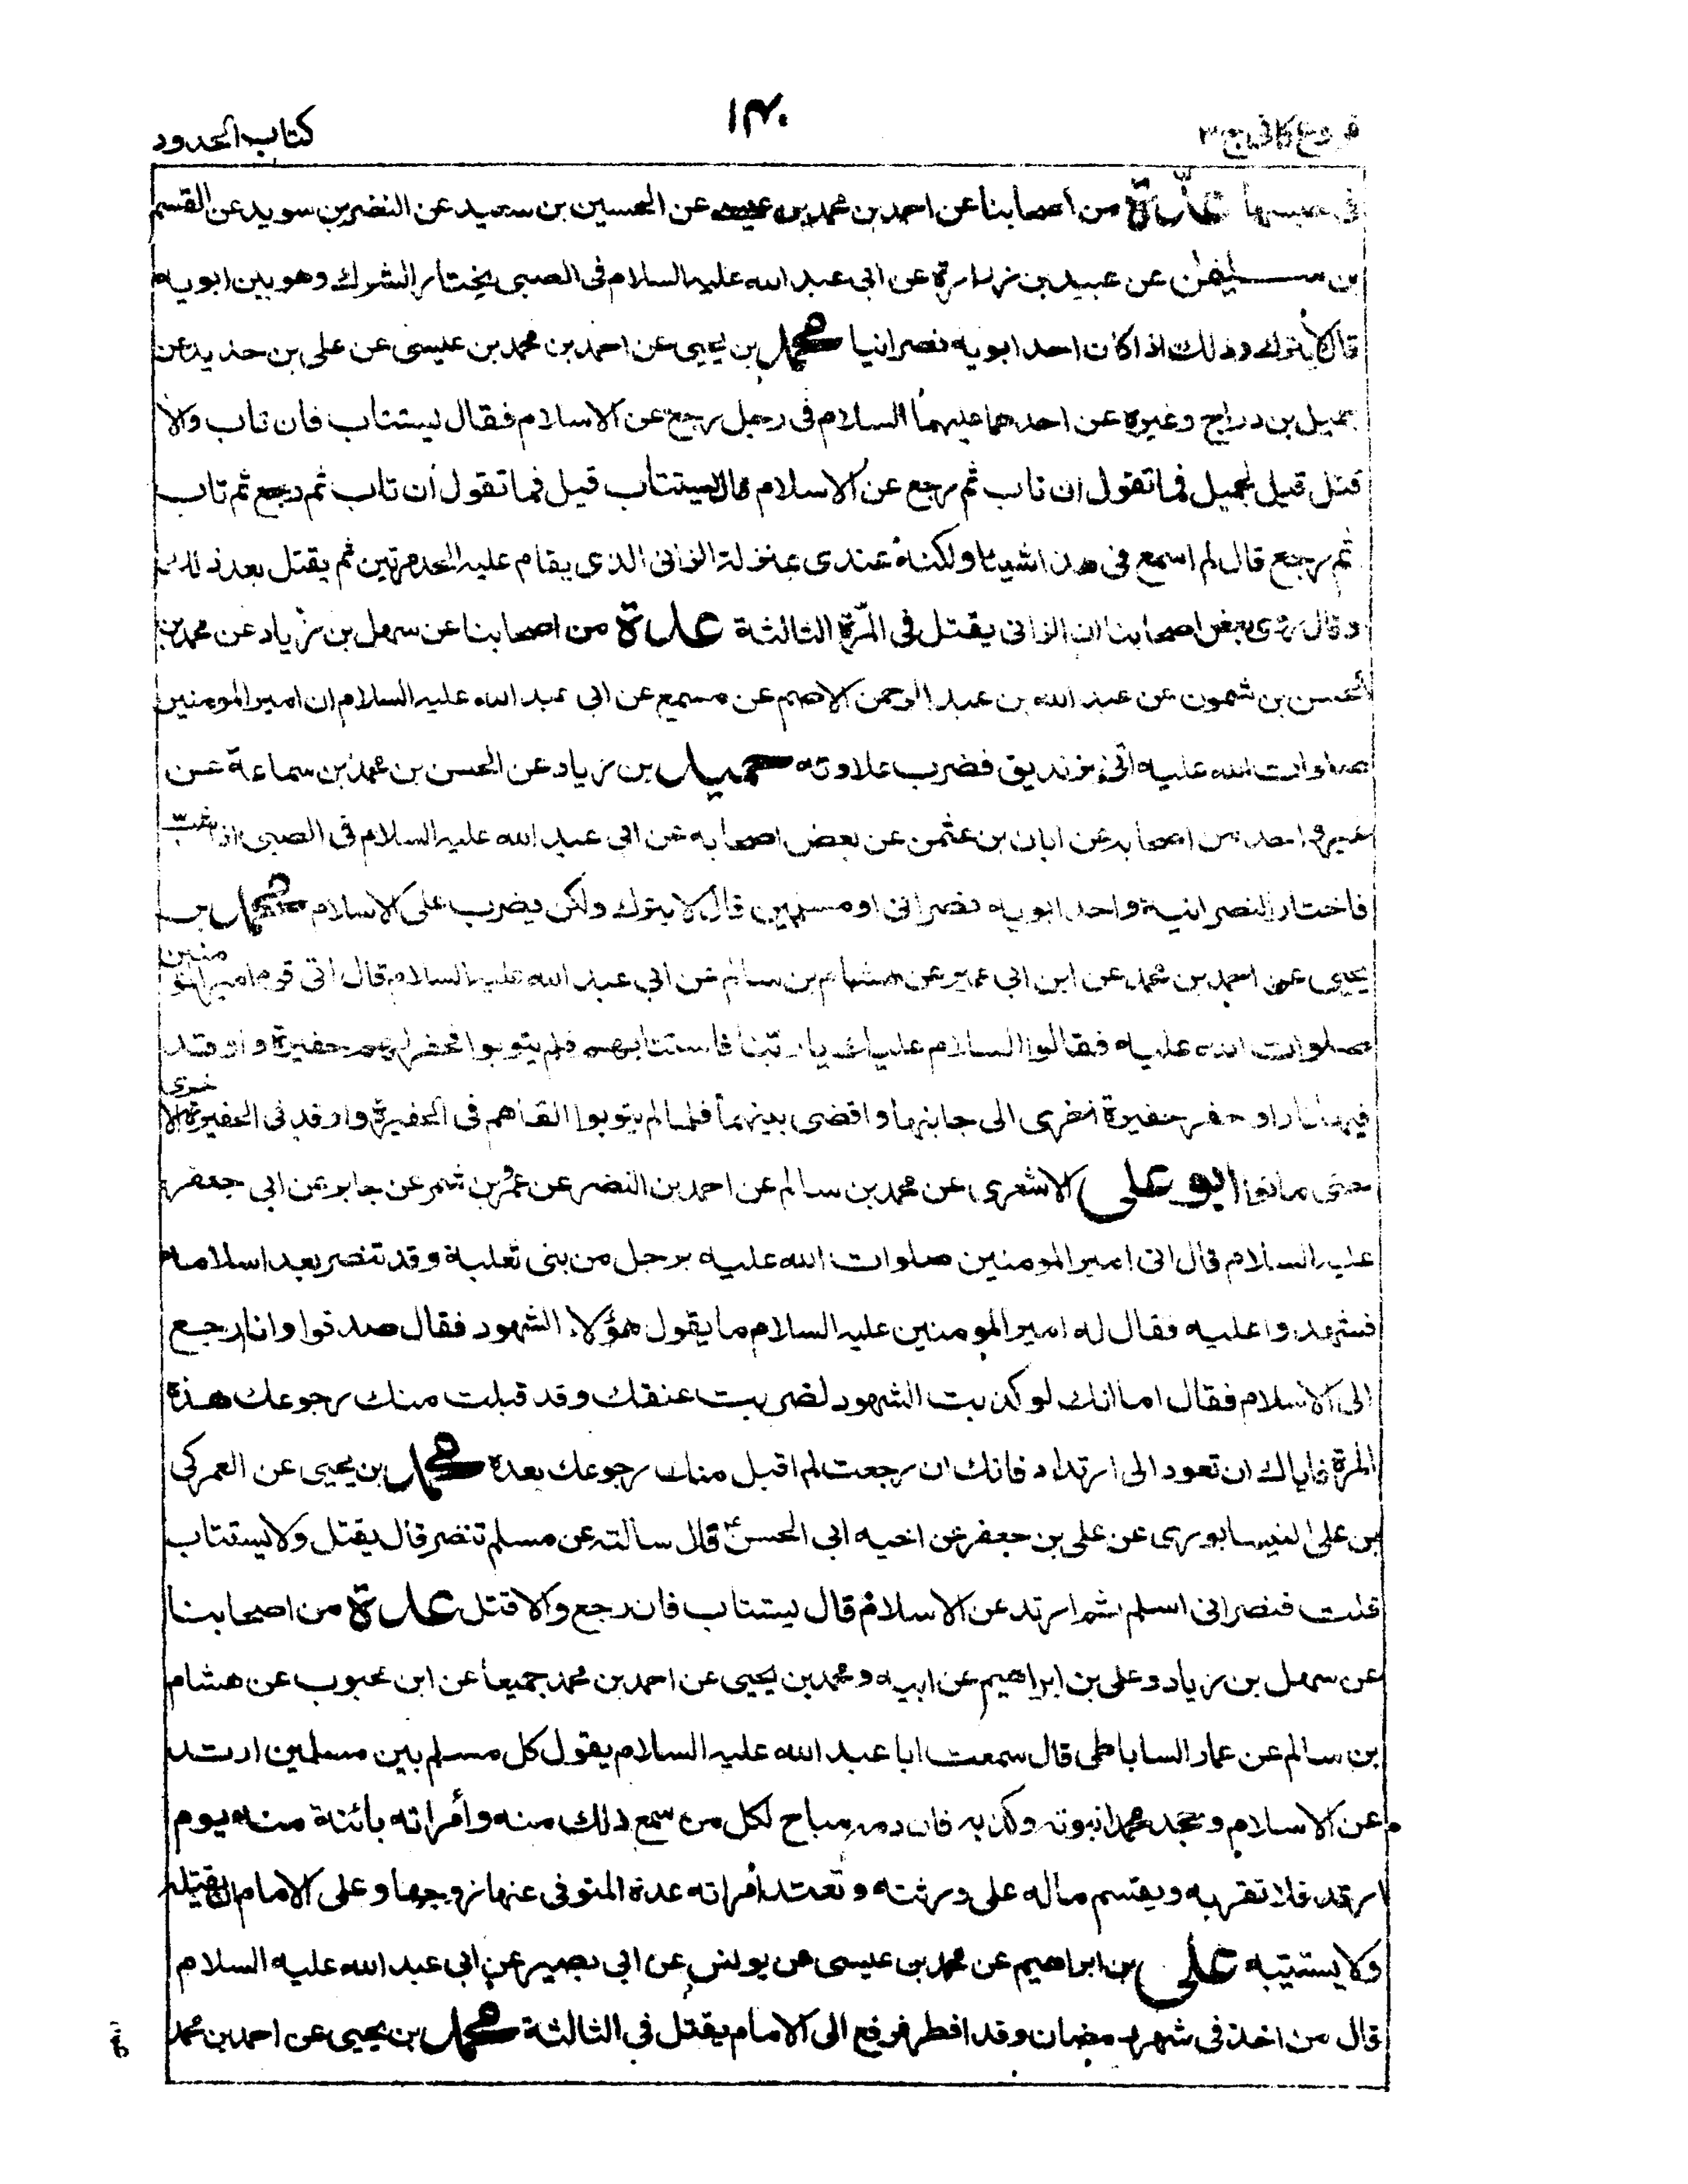 فروع كافي ج ٣
١٣٠
كتاب الحدود
في حبسها عدّة من اصحابنا عن احمد بن محمد بن عيسى عن الحسين بن سعيد عن النضر بن سويد عن القسم
بن سليمن عن عبيد بن زرارة عن ابي عبد الله عليه السلام في الصبي يختار الشرك وهو بين ابويه
قال لا يترك وذلك اذا كان احد ابويه نصرانيا محمد بن يحيى عن احمد بن محمد بن عيسى عن علي بن حديد عن
جميل بن دراج وغيره عن احدهما عليهما السلام في رجل رجع عن الاسلام فقال يستتاب فان تاب والا
قتل قيل لجميل فما تقول ان تاب ثم رجع عن الاسلام قال يستتاب قيل فما تقول ان تاب ثم رجع ثم تاب
ثم رجع قال لم اسمع في هذا شيئا ولكنه عندي بمنزلة الزاني الذي يقام عليه الحد مرتين ثم يقتل بعد ذلك
وقال روى بعض اصحابنا ان الزاني يقتل في المرّة الثالثة عدة من اصحابنا عن سهل بن زياد عن محمد بن
الحسن بن شمون عن عبد الله بن عبد الرحمن الاصم عن مسمع عن ابي عبد الله عليه السلام ان امير المومنين
صلوات الله عليه اتى بزنديق فضرب علاوته حميد بن زياد عن الحسن بن محمد بن سماعة عن
غير واحد من اصحابه عن ابان بن عثمن عن بعض اصحابه عن ابي عبد الله عليه السلام في الصبي اذا شبّ
فاختار النصرانية واحد ابويه نصراني او مسلمين قال لا يترك ولكن يضرب على الاسلام محمد بن
يحيى عن احمد بن محمد عن ابن ابي عمير عن هشام بن سالم عن ابي عبد الله عليه السلام قال اتى قوم امير المومنين
صلوات الله عليه فقالوا السلام عليك يا ربّنا فاستتابهم فلم يتوبوا فحفر لهم حفيرة واوقد
فيها نارا وحفر حفيرة اخرى الى جانبها وافضى بينهما فلما لم يتوبوا القاهم في الحفيرة واوقد في الحفيرة الاخرى
حتى ماتوا ابو علي الاشعري عن محمد بن سالم عن احمد بن النضر عن عمرو بن شمر عن جابر عن ابي جعفر
عليه السلام قال اتى امير المومنين صلوات الله عليه برجل من بني ثعلبة وقد تنصر بعد اسلامه
فشهدوا عليه فقال له امير المومنين عليه السلام ما يقول هؤلاء الشهود فقال صدقوا وانا ارجع
الى الاسلام فقال اما انك لو كذبت الشهود لضربت عنقك وقد قبلت منك رجوعك هذه
المرة فاياك ان تعود الى ارتداد فانك ان رجعت لم اقبل منك رجوعك بعده محمد بن يحيى عن العمركي
بن علي النيسابوري عن علي بن جعفر عن اخيه ابي الحسن ع قال سالته عن مسلم تنصر قال يقتل ولا يستتاب
قلت فنصراني اسلم ثم ارتد عن الاسلام قال يستتاب فان رجع والا قتل عدة من اصحابنا
عن سهل بن زياد وعلي بن ابراهيم عن ابيه ومحمد بن يحيى عن احمد بن محمد جميعا عن ابن محبوب عن هشام
بن سالم عن عمار الساباطي قال سمعت ابا عبد الله عليه السلام يقول كل مسلم بين مسلمين ارتد
عن الاسلام وجحد محمدا نبوته وكذبه فان دمه مباح لكل من سمع ذلك منه وأمراته بائنة منه يوم
ارتد فلا تقربه ويقسم ماله على ورثته وتعتد امراته عدة المتوفى عنها زوجها وعلى الامام ان يقتله
ولا يستتيبه علي بن ابراهيم عن محمد بن عيسى عن يونس عن ابي بصير عن ابي عبد الله عليه السلام
قال من اخذ في شهر رمضان وقد افطر فرفع الى الامام يقتل في الثالثة محمد بن يحيى عن احمد بن محمد